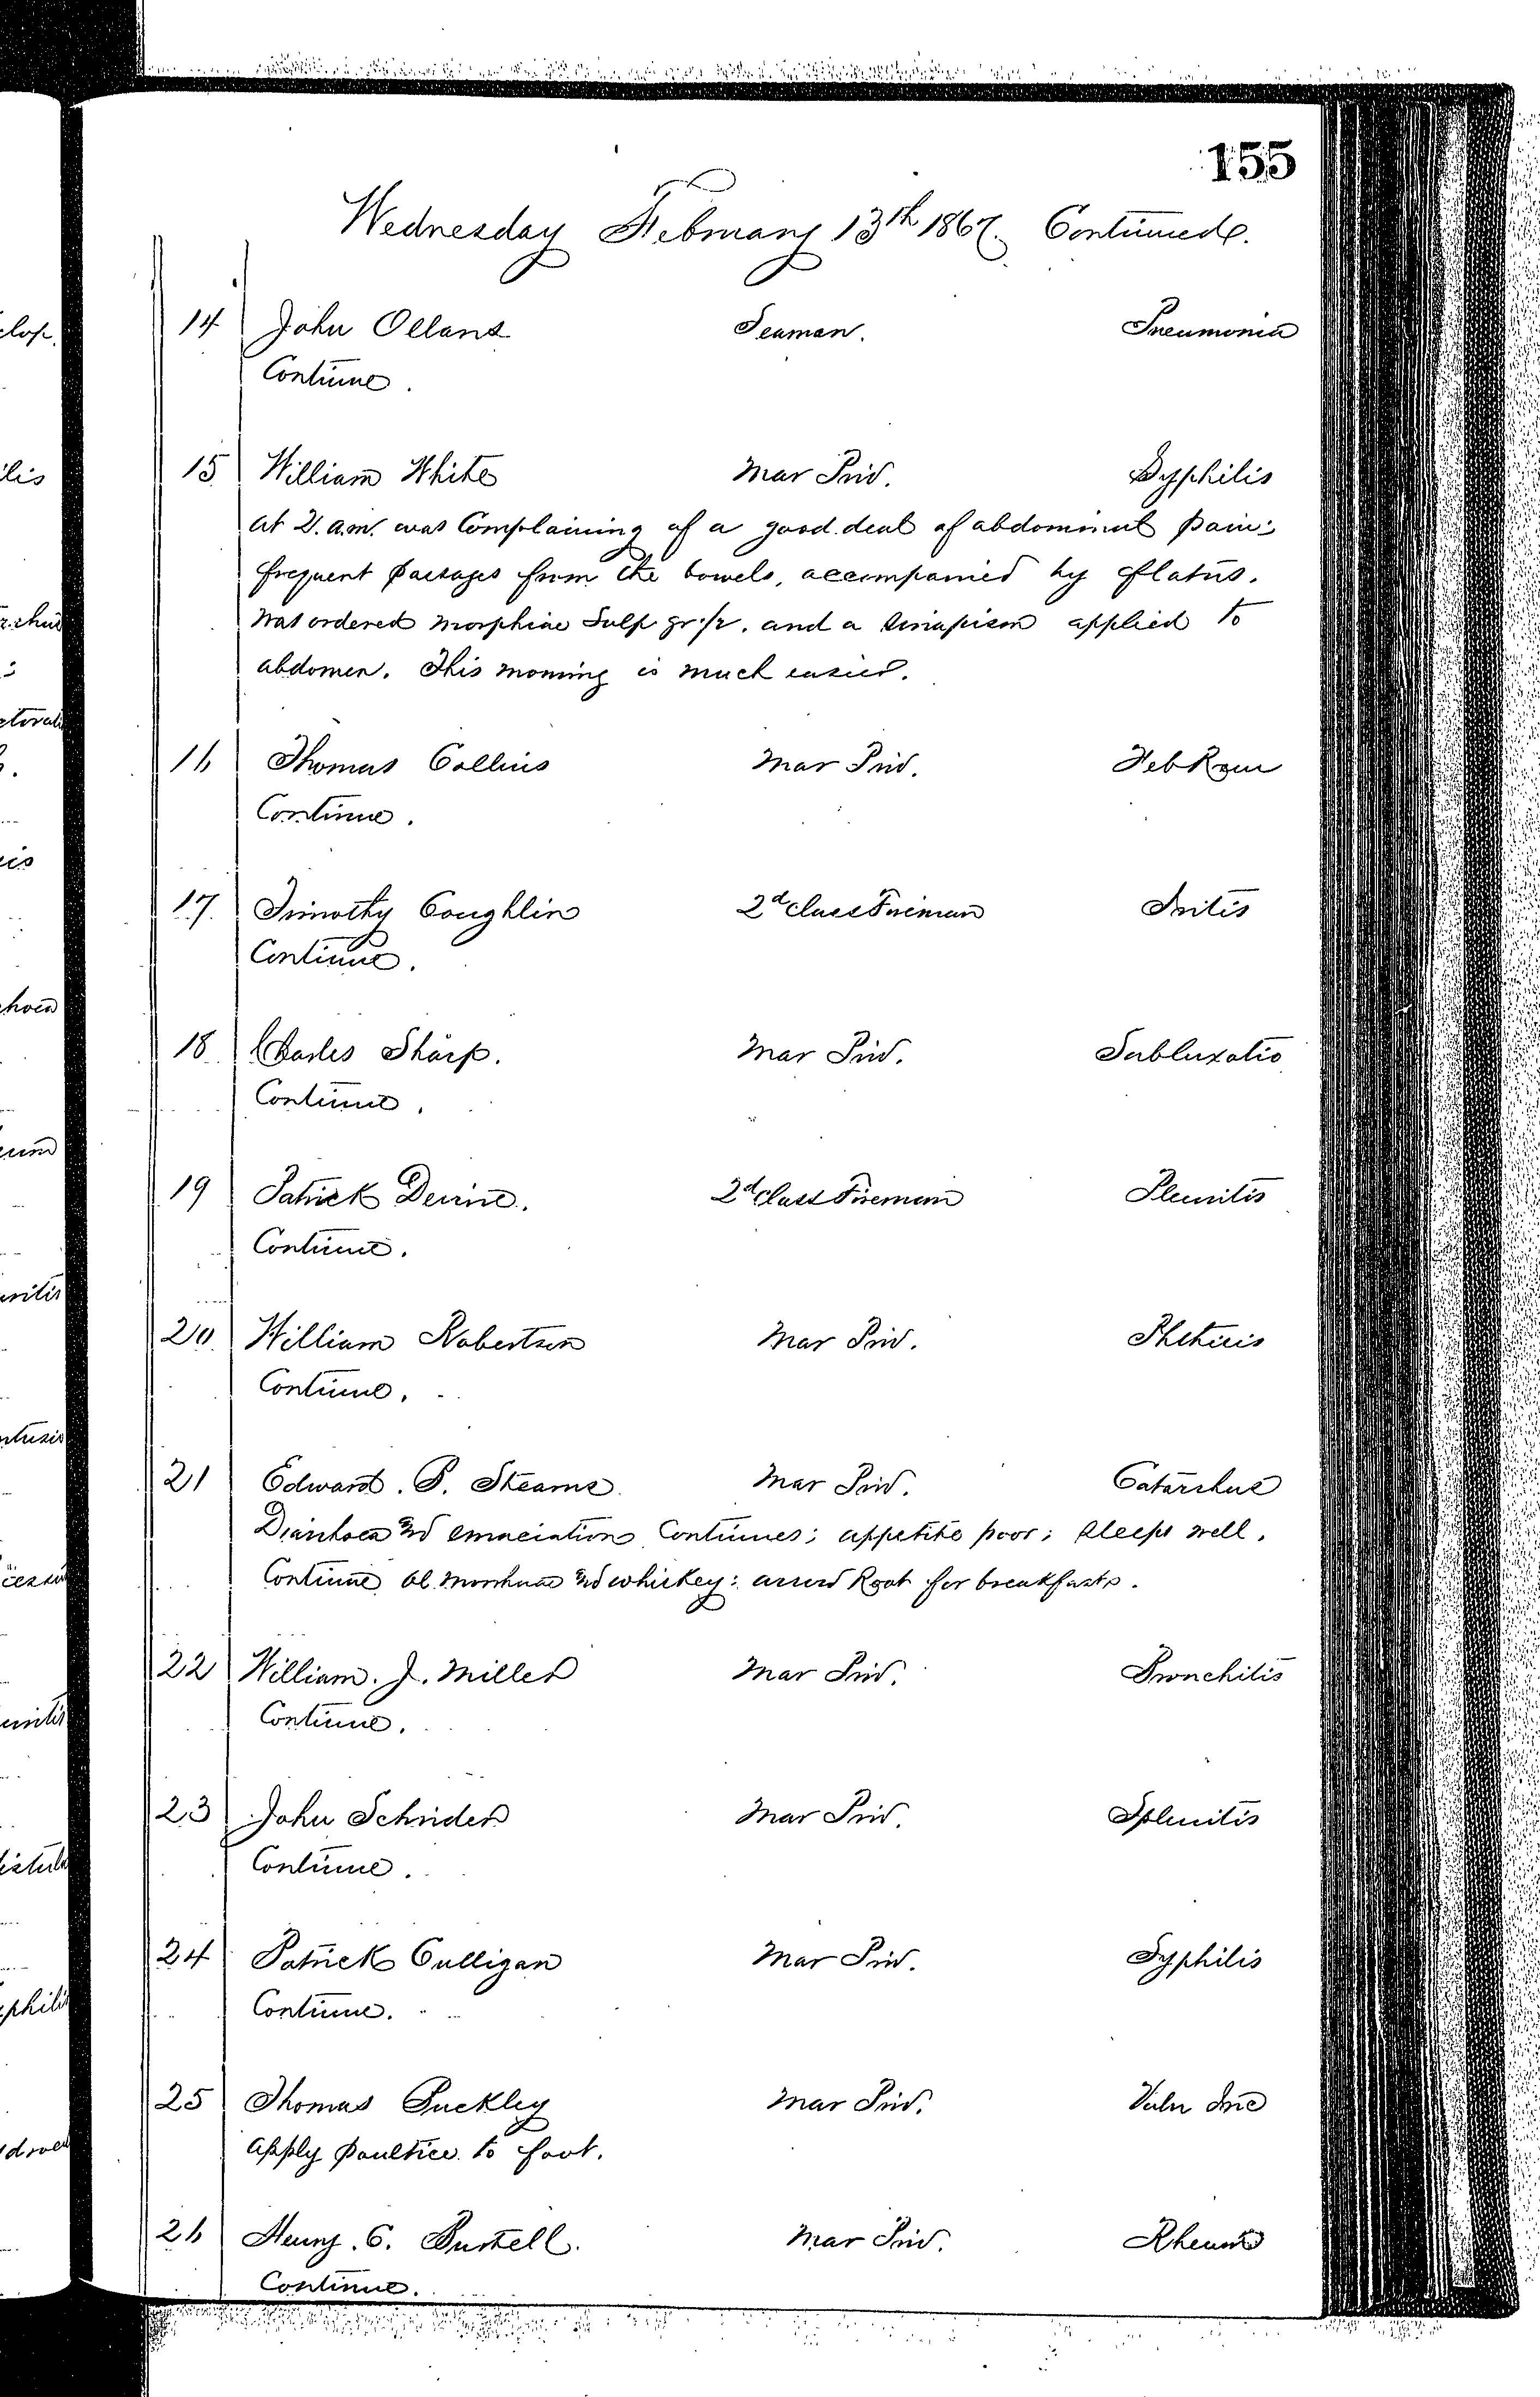 155
Wednesday February 13th 1867. Continued.
14 John Ollans Seaman. Pneumonia
Continue.
15 William White Mar Priv. Syphilis
At 2. a.m. was Complaining of a good deal of abdominal pain:
frequent passages from the bowels, accompanied by flatus.
Was ordered Morphiae Sulp gr ½. and a sinapism applied to
abdomen. This morning is much easier.
16 Thomas Collins Mar Priv. Feb Rem
Continue.
17. Timothy Coughlin 2d Class Fireman Iritis
Continue.
18 Charles Sharp. Mar Priv. Subluxatio
Continue.
19 Patrick Devine. 2d Class Fireman Pleuritis
Continue.
20 William Robertson Mar Priv. Phthisis
Continue.
21 Edward. P. Stearns Mar Priv. Catarrhus
Diarrhoea and emaciation Continues; appetite poor; sleeps well.
Continue Ol. Morrhuae and whiskey: arrow Root for breakfast.
22 William. J. Miller Mar Priv. Bronchitis
Continue.
23 John Schrider Mar Priv. Splenitis
Continue.
24 Patrick Culligan Mar Priv. Syphilis
Continue.
25 Thomas Buckley Mar Priv. Vuln Inc
Apply poultice to foot.
26 Henry. C. Burtell. Mar Priv. Rheum
Continue.